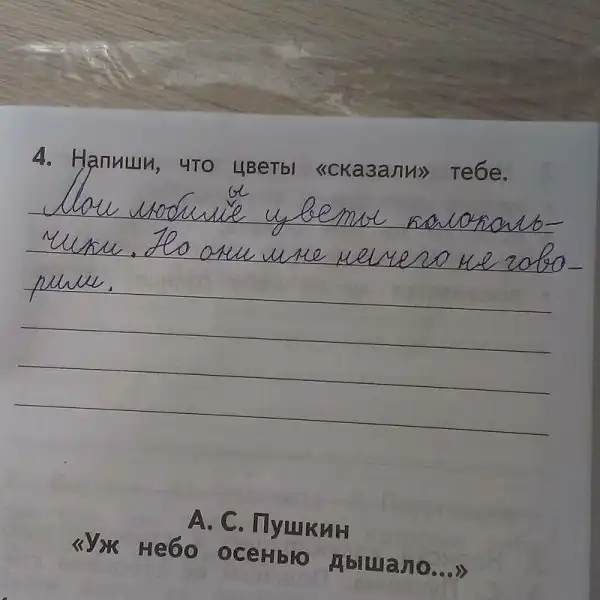 4. Напиши, что цветы «сказали» тебе.
ы
Мои любимие цветы колоколь-
чики. Но они мне нечего не гово-
рили.
А. С. Пушкин
«Уж небо осенью дышало...»